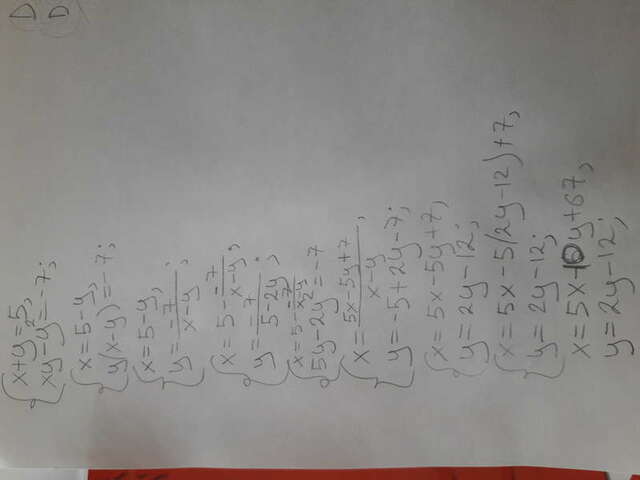 x+y=5, D
xy-y²=-7; D
x=5-y,
y(x-y)=-7;
x=5-y,
y=-7/(x-y);
x=5- -7/(x-y),
y=-7/(5-2y);
x=5- -7/(x-y)
5y-2y²=-7
x=(5x-5y+7)/(x-y),
y=-5+2y-7;
x=5x-5y+7,
y=2y-12;
x=5x-5(2y-12)+7,
y=2y-12;
x=5x-10y+67,
y=2y-12;